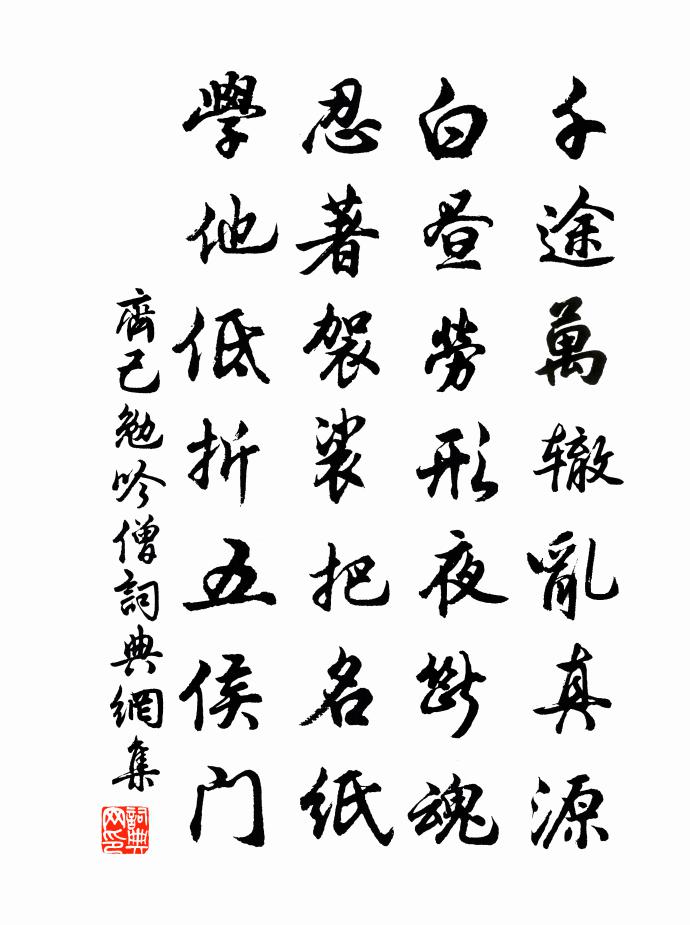 千途萬辙亂真源
白晝勞形夜斷魂
忍著袈裟把名紙
學他低折五侯门
齊己勉吟僧詞典網集
詞典网印